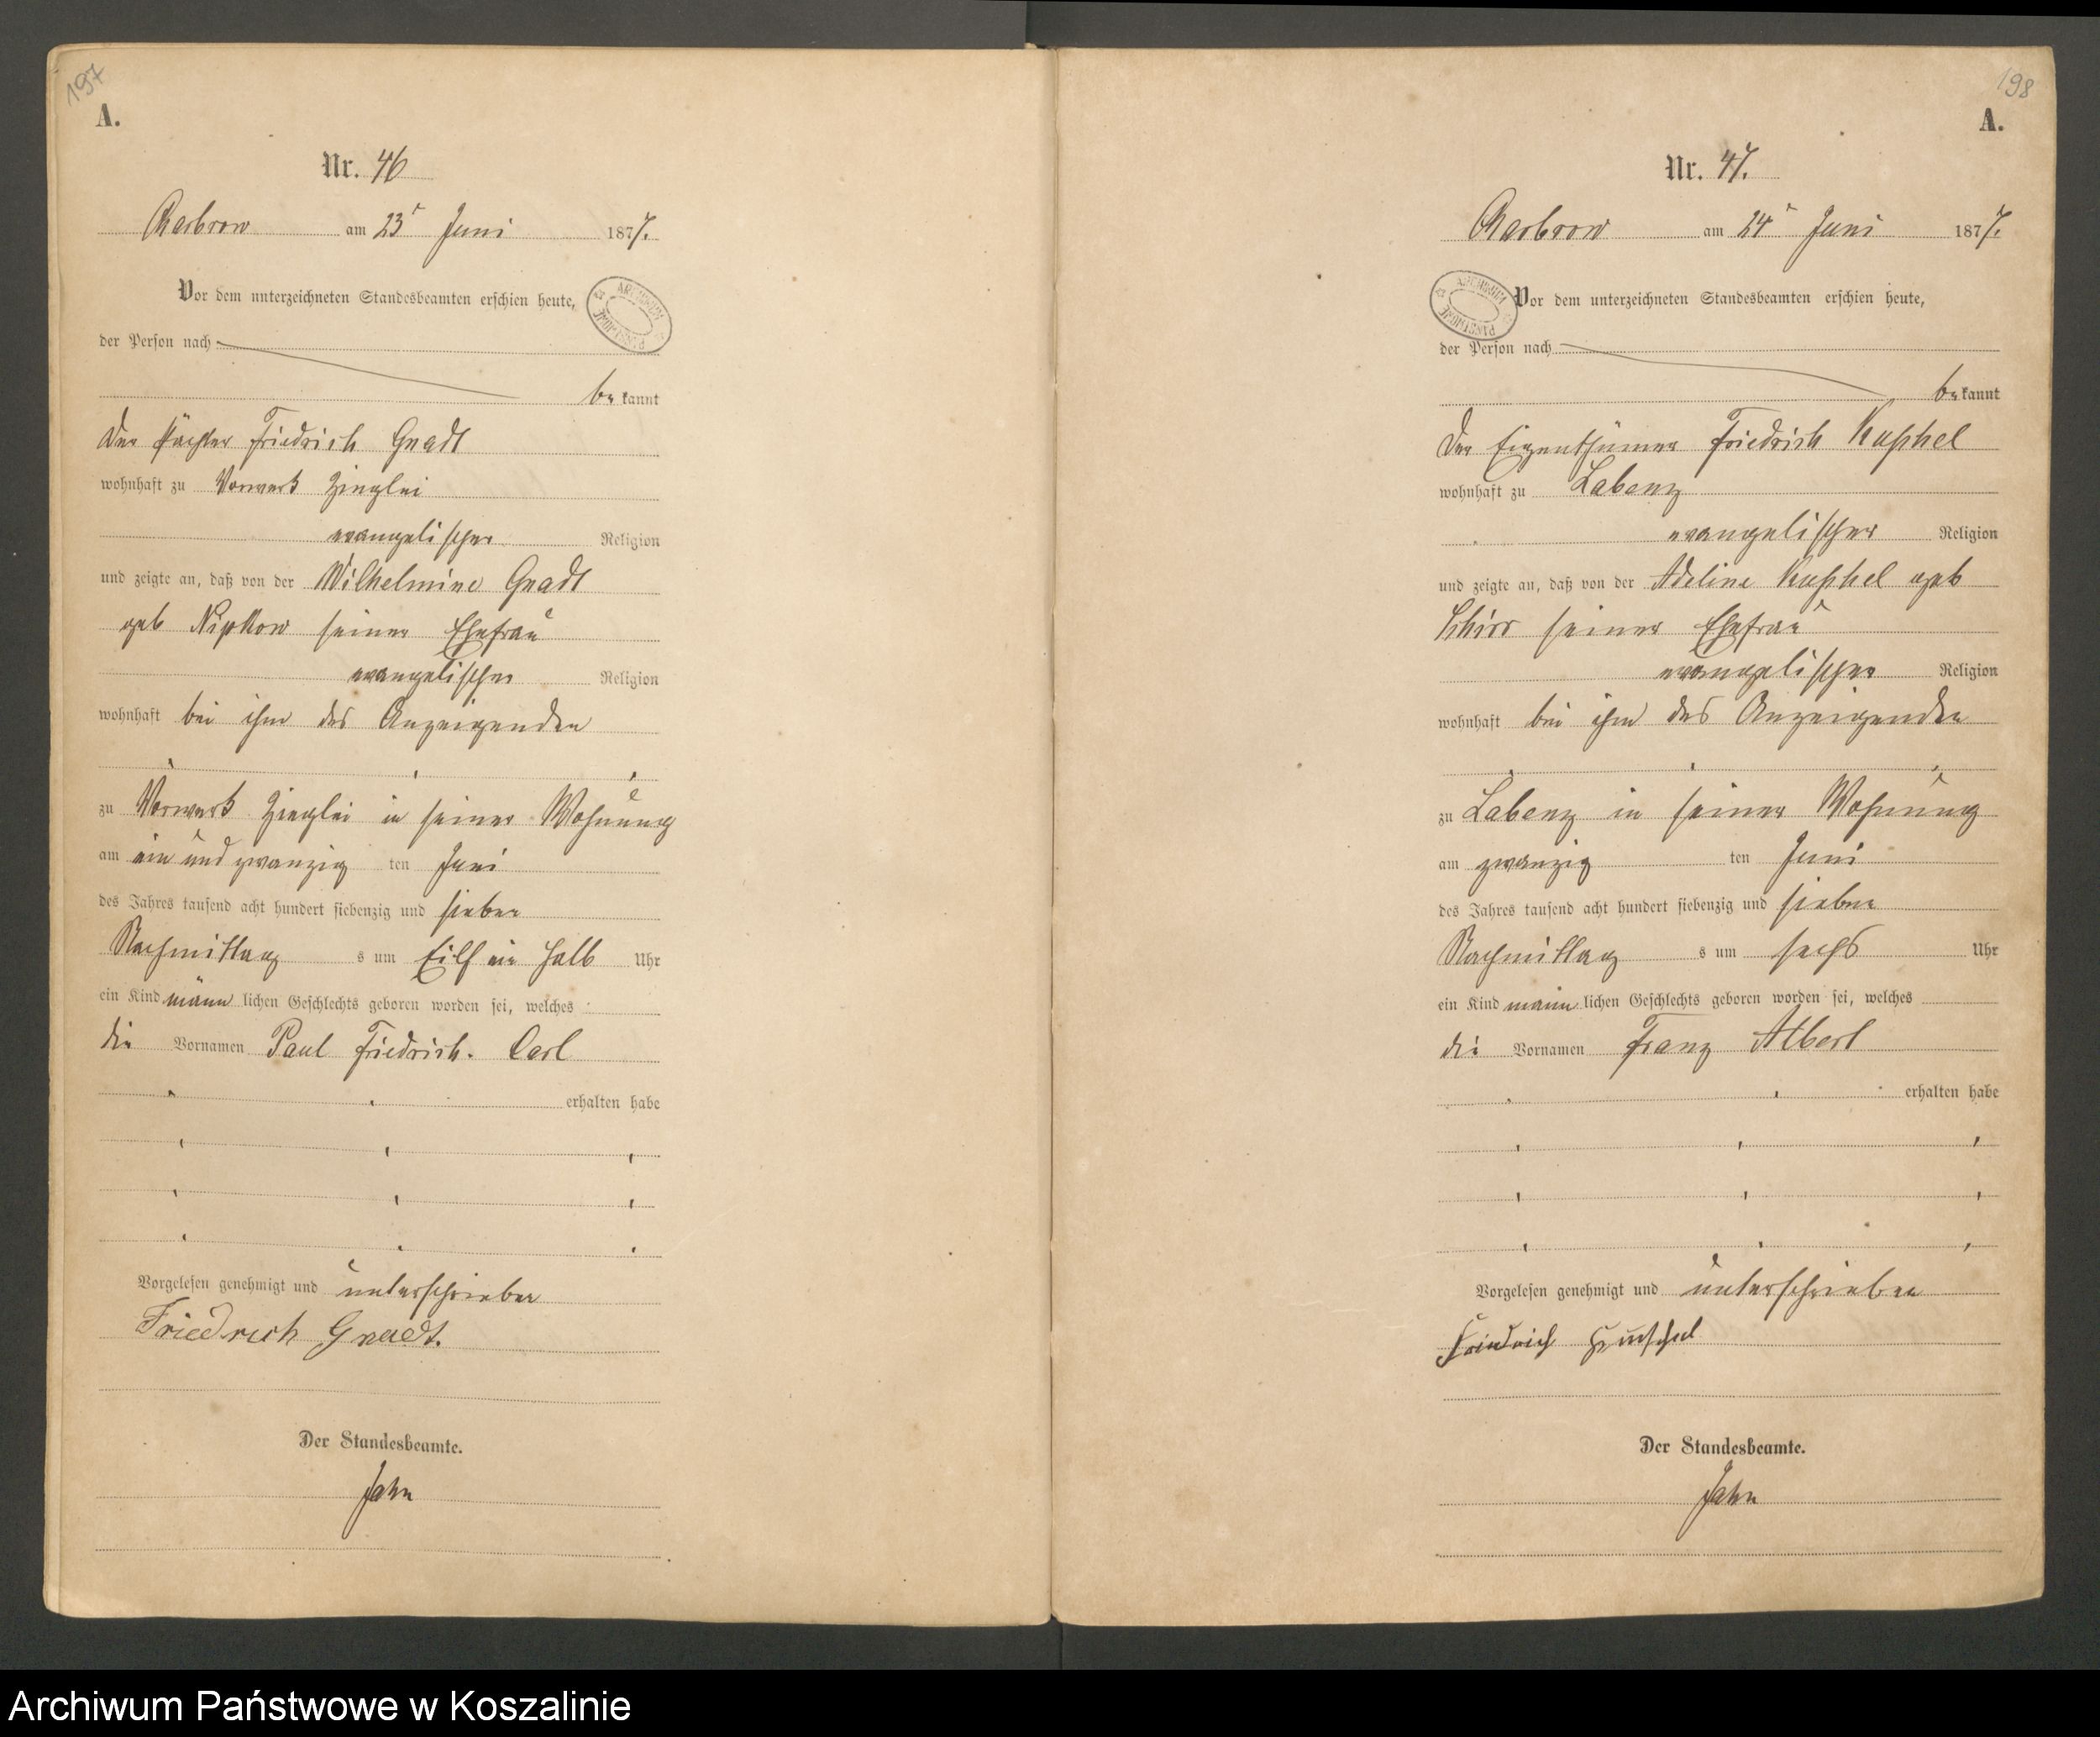 197
A.
Nr. 46
Charbrow am 23t Juni 1877.
Vor dem unterzeichneten Standesbeamten erschien heute,
der Person nach
be kannt
Der Pächter Friedrich Gnadt
wohnhaft zu Vorwerk Zieglei
evangelischer Religion
und zeigte an, daß von der Wilhelmine Gnadt
geb Nipkow seiner Ehefrau
evangelischer Religion
wohnhaft bei ihm des Anzeigenden
zu Vorwerk Zieglei in seiner Wohnung
am ein und zwanzig ten Juni
des Jahres tausend acht hundert siebenzig und sieben
Nachmittag s um Eilf ein halb Uhr
ein Kind männ lichen Geschlechts geboren worden sei, welches
die Vornamen Paul Friedrich. Carl
erhalten habe
Vorgelesen genehmigt und unterschrieben
Friedrich Gnadt.
Der Standesbeamte.
Jahn
198
A.
Nr. 47.
Charbrow am 24t Juni 1877.
ARCHIWUM PAŃSTWOWE
Vor dem unterzeichneten Standesbeamten erschien heute,
der Person nach
be kannt
Der Eigenthümer Friedrich
wohnhaft zu Labenz
evangelischer Religion
und zeigte an, daß von der Adeline geb
Schirr seiner Ehefrau
evangelischer Religion
wohnhaft bei ihm des Anzeigenden
zu Labenz in seiner Wohnung
am zwanzig ten Juni
des Jahres tausend acht hundert siebenzig und sieben
Nachmittag s um sechs Uhr
ein Kind männ lichen Geschlechts geboren worden sei, welches
die Vornamen Franz Albert
erhalten habe
Vorgelesen genehmigt und unterschrieben
Friedrich
Der Standesbeamte.
Jahn
Archiwum Państwowe w Koszalinie